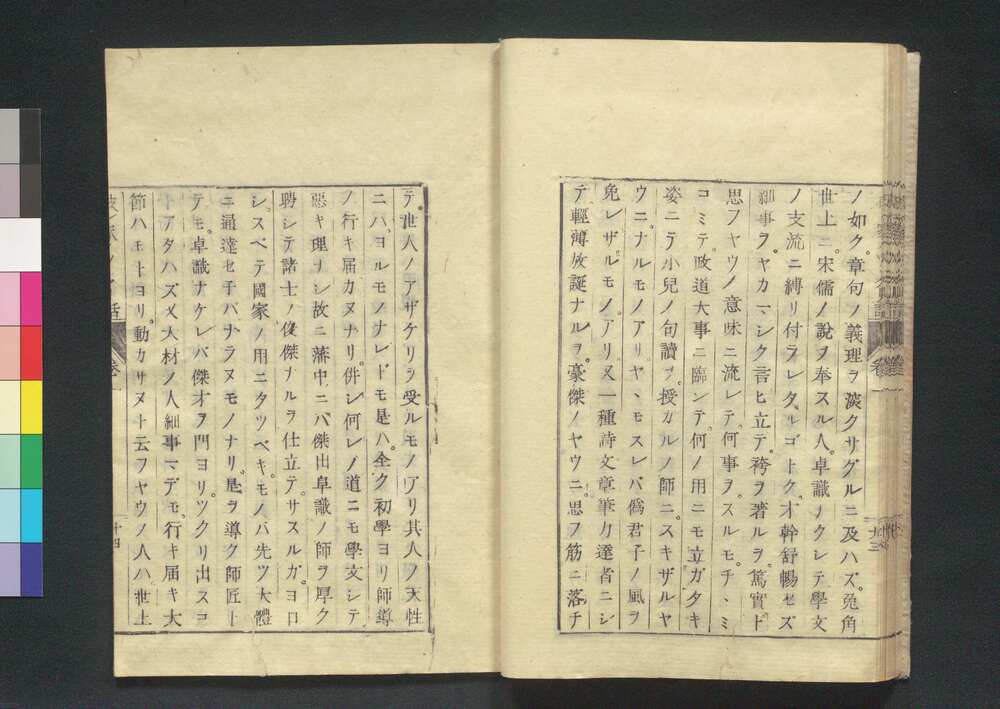 ノ如ク章句ノ義理ヲ淡クサグルニ及ハズ。兔角
世上ニ。宋儒ノ說ヲ奉スル人。卓識ナクレテ學文
ノ支流ニ縛リ付ラレタルゴトク。才幹舒暢セズ
細事ヲ。ヤカマシク言ヒ立テ。袴ヲ著ルヲ。篤實ト
思フヤウノ意味ニ流レテ。何事ヲ。スルモ。チヽミ
コミテ。政道大事ニ臨ンテ。何ノ用ニモ立ガタキ
姿ニテ。小兒ノ句讀ヲ。授カルノ師ニ。スキザルヤ
ウニ。ナルモノアリ。ヤヽモスレバ僞君子ノ風ヲ
免レザルモノ。アリ。又一種詩文章筆力達者ニシ
テ。輕薄放誕ナルヲ。豪傑ノヤウニ。思フ筋ニ落チ
卷一
十三
テ。世人ノアザケリヲ受ルモノアリ。其人ノ天性
ニハ。ヨルモノナレドモ是ハ。全ク初學ヨリ師導
ノ行キ届カヌナリ。併シ何レノ道ニモ學文シテ
惡キ理ナシ故ニ藩中ニハ傑出卓識ノ師ヲ厚ク
聘シテ諸士ノ俊傑ナルヲ仕立テ。サスルガ。ヨロ
シ。スベテ國家ノ用ニタツベキ。モノハ先ツ大體
ニ通達セ子バ。ナラヌモノナリ。是ヲ導ク師匠ト
テモ。卓識ナケレバ傑才ヲ門ヨリ。ツクリ出スコ
トアタハズ。又大材ノ人細事マデモ。行キ届キ大
節ハモトヨリ。動カサヌト云フヤウノ人ハ世上
十四